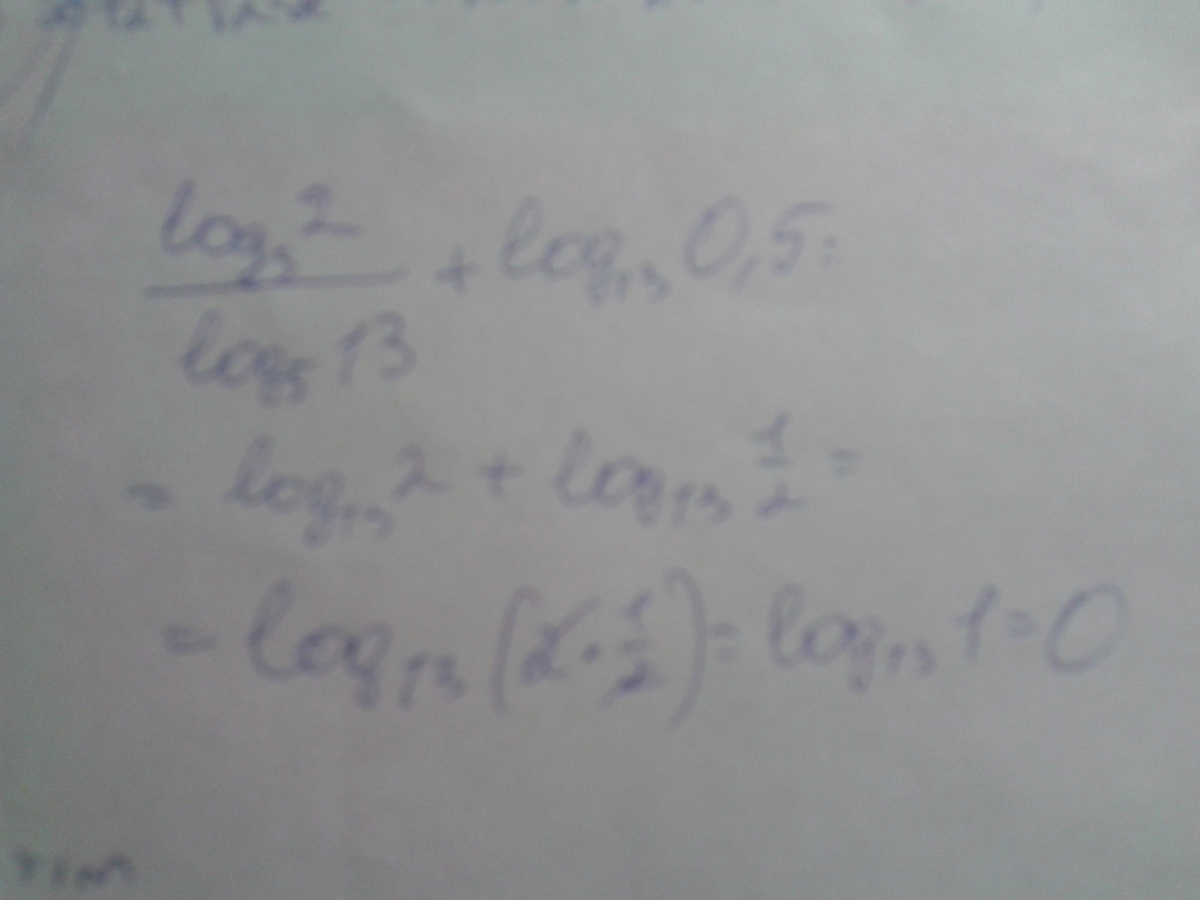 log₅2 / log₅13 + log₁₃ 0,5 =
= log₁₃ 2 + log₁₃ 1/2 =
= log₁₃ (2 · 1/2) = log₁₃ 1 = 0